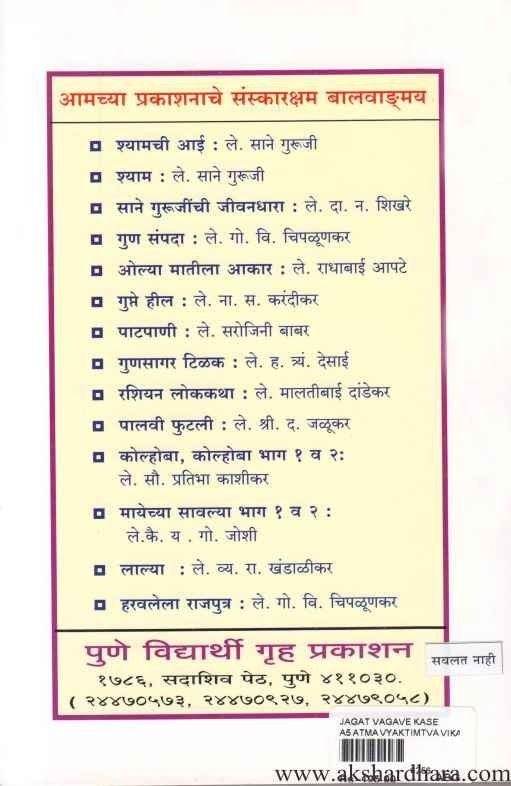 आमच्या प्रकाशनाचे संस्कारक्षम बालवाङ्मय
श्यामची आई : ले. साने गुरूजी
श्याम : ले. साने गुरूजी
साने गुरूजींची जीवनधारा : ले. दा. न. शिखरे
गुण संपदा : ले. गो. वि. चिपळूणकर
ओल्या मातीला आकार : ले. राधाबाई आपटे
गुप्ते हील : ले. ना. स. करंदीकर
पाटपाणी : ले. सरोजिनी बाबर
गुणसागर टिळक : ले. ह. त्र्यं. देसाई
रशियन लोककथा : ले. मालतीबाई दांडेकर
पालवी फुटली : ले. श्री. द. जळूकर
कोल्होबा, कोल्होबा भाग १ व २:
ले. सौ. प्रतिभा काशीकर
मायेच्या सावल्या भाग १ व २ :
ले.कै. य . गो. जोशी
लाल्या : ले. व्य. रा. खंडाळीकर
हरवलेला राजपुत्र : ले. गो. वि. चिपळूणकर
पुणे विद्यार्थी गृह प्रकाशन
१७८६, सदाशिव पेठ, पुणे ४११०३०.
( २४४७०५७३, २४४७०९२७, २४४७९०५८)
सवलत नाही
JAGAT VAGAVE KASE
A5 ATMA VYAKTIMTVA VIKA
www.akshardhara.com